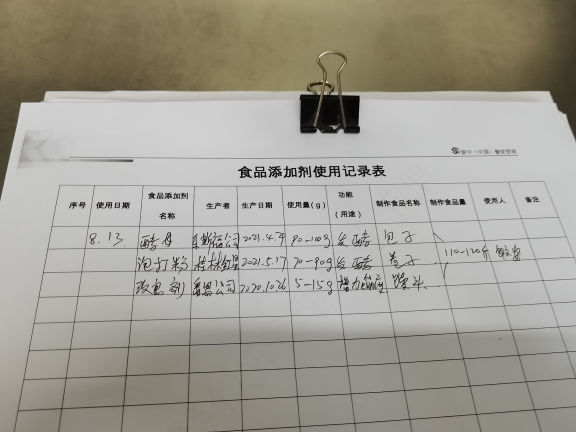 食品添加剂使用记录表
序号 使用日期 食品添加剂名称 生产者 生产日期 使用量(g) 功能(用途) 制作食品名称 制作食品量 使用人 备注
8.13 酵母 公司 2021.4.24 90-110g 发酵 包子
泡打粉 桂林 2021.5.17 70-90g 发酵 卷子 110-120个
改良剂 公司 2020.10.26 5-15g 增力 馒头